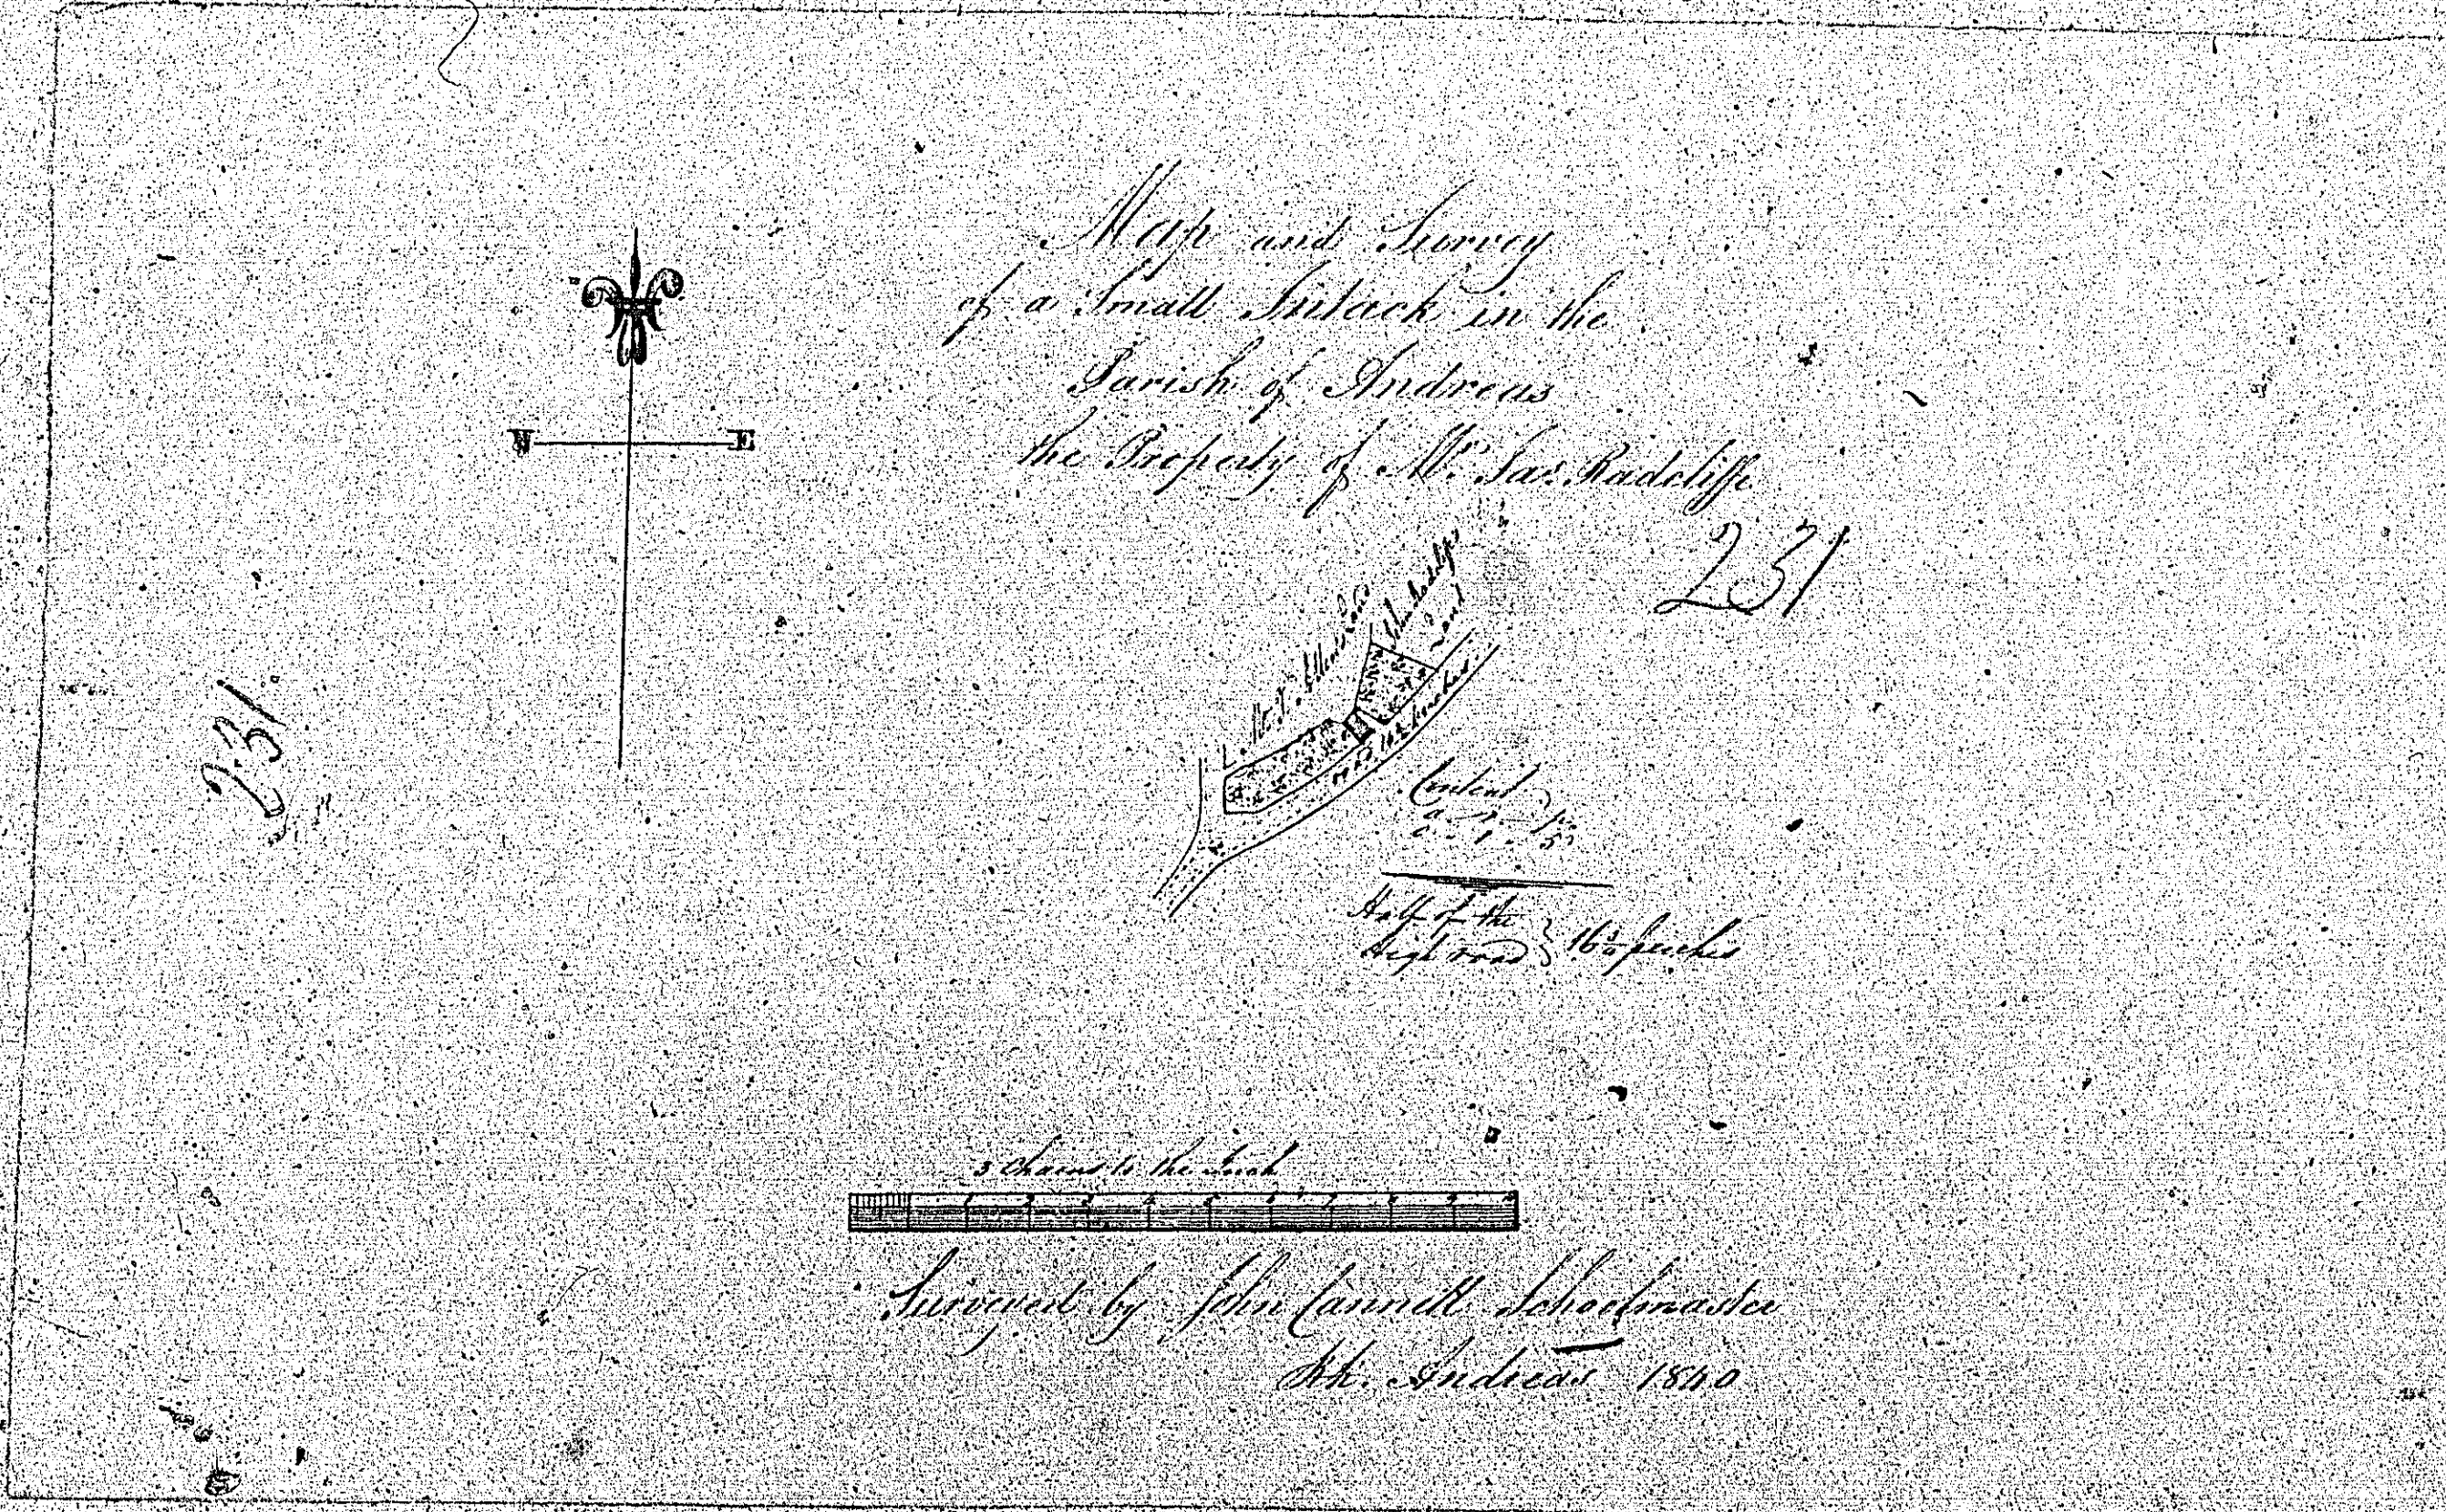 Map and Survey
of a Small Intack in the
Parish of Andreas
the Property of Mr. Jas. Radcliffe
231
W E
231
Land
Land
Content
a r p
0 1
Half of the
High road } 16 perches
3 Chains to the Inch
1 2 3 4 5 6 7 8 9 10
Surveyed by John Cannell Schoolmaster
Kk. Andreas 1840